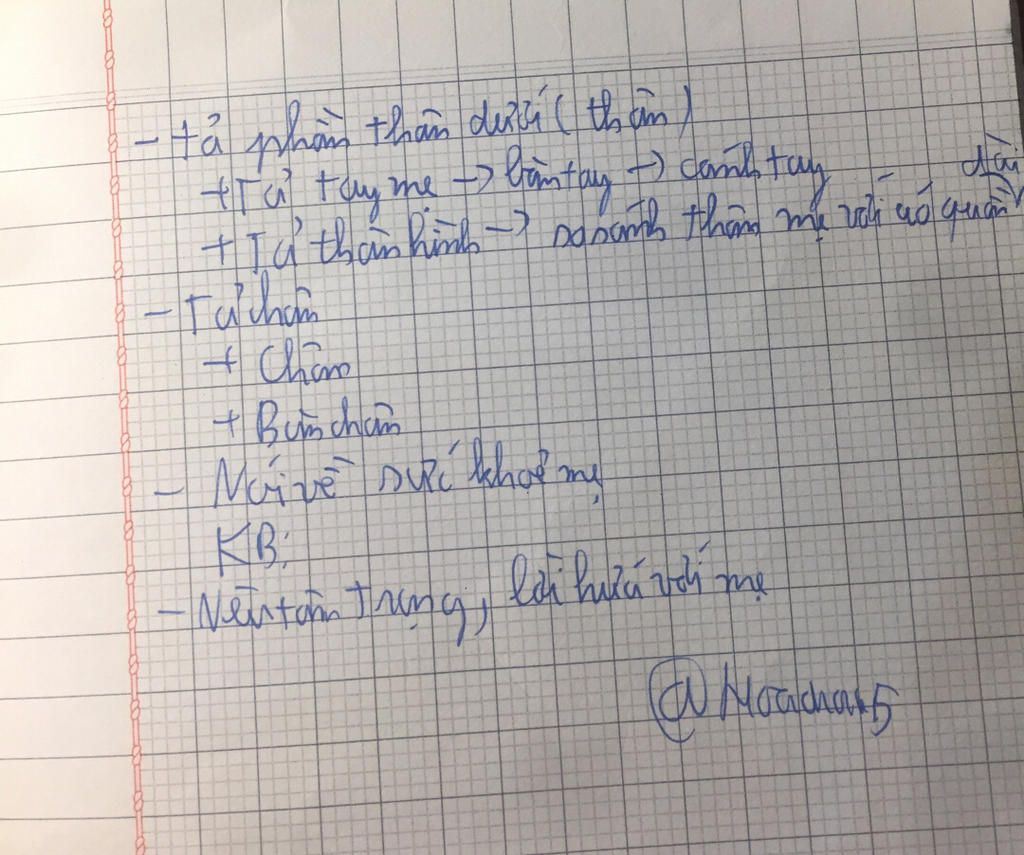 - tả phần thân dưới (thân)
+ Tả tay mẹ → bàn tay → cánh tay
+ Tả thân hình → so sánh thân mẹ với áo quần dài
- Tả chân
+ Chân
+ Bàn chân
- Nói về sức khoẻ mẹ
KB:
- Nêu tôn trọng, lời hứa với mẹ